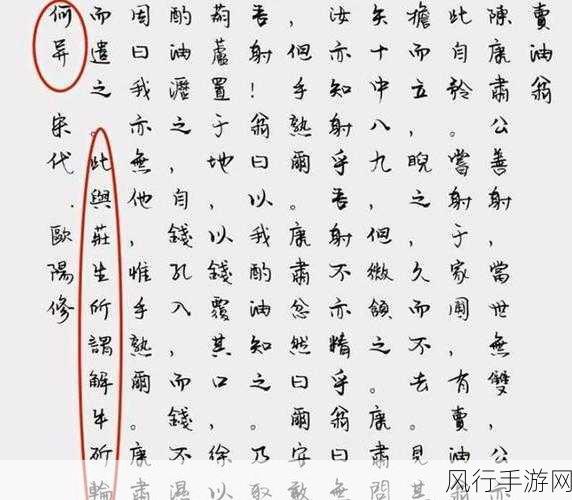 賣油翁
陳康肅公善射，當世無雙，公亦
此自矜。嘗射于家圃，有賣油
擔而立，睨之，久而不去。見其
矢十中八九，但微頷之。康肅問
汝亦知射乎。吾射不亦精乎。翁曰無
，但手熟爾。康肅忿然曰爾安敢
吾射！翁曰以我酌油知之。乃取
葫蘆置于地，以錢覆其口，徐以
酌油瀝之，自錢孔入，而錢不濕
因曰我亦無他，惟手熟爾。康肅
而遣之。此與莊生所謂解牛斫輪
何异 宋代．歐陽修
风行手游网